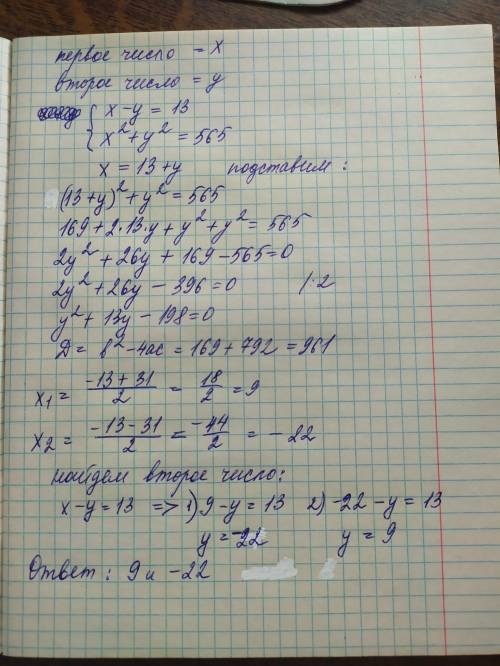 первое число = x
второе число = y
{ x - y = 13
x² + y² = 565
x = 13 + y подставим:
(13+y)² + y² = 565
169 + 2·13·y + y² + y² = 565
2y² + 26y + 169 - 565 = 0
2y² + 26y - 396 = 0 /:2
y² + 13y - 198 = 0
D = b² - 4ac = 169 + 792 = 961
x₁ = (-13+31)/2 = 18/2 = 9
x₂ = (-13-31)/2 = -44/2 = -22
найдем второе число:
x - y = 13 => 1) 9 - y = 13 2) -22 - y = 13
y = -22 y = 9
Ответ: 9 и -22